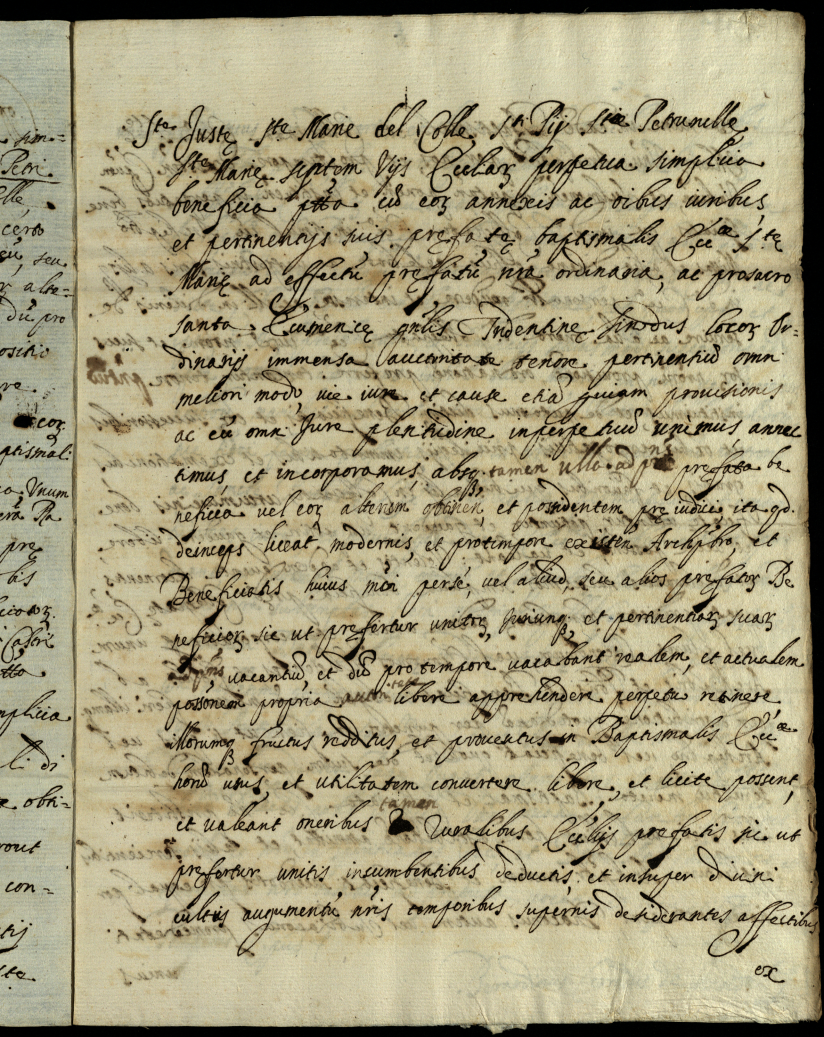 sim=
Petri
elle,
certo
eu, seu
r alte=
du pro
ositio
re
ecoꝝ
ptismal.
a Vnum
era Pa
pre
bis
Castri
tto
mplicia
li di
e obti=
rout
con=
tij
ste
Ste Justę ste Marię del Colle sti Pij stæ Petrunellę
ste Marię septem Vijs Eccliaꝝ perpetua simplicia
beneficia ptta cũ eoꝝ annexis ac oibus iuribus
et pertinentijs suis pręfatę baptismalis Ecciæ stę
Marię ad effectũ pręfatũ nrã ordinaria, ac prosacro
santa Ecumenicę gnlis Tridentinę sinodus locoꝝ Or=
dinarijs immensa auctoritate tenore pertinentiũ omni
meliori modo, uie iure et cause etiã provisionis
ac eũ omni Jure plenitudine inperpetuũ unimus, annec
timus, et incorporamus, absqȝ tamen ulla prefata be
neficia vel eoꝝ alterum obtinen, et possidentem pręiudici, ita qd.
deinceps liceat modernis, et protimpore existen Archpbro, et
Beneficiatis huius mõi perse, vel aliud, seu alios prefatoꝝ Be
neficioꝝ sic ut prefertur unitoꝝ, Juriumqȝ et pertinentiaꝝ suaꝝ
vacantiũ, et diũ pro tempore vacabant realem, et actualem
possõnem propria auctoritate libere apprehendere perpetu retinere
illorumqȝ fructus redditus, et prouentus in Baptismalis Ecciæ
hoiũ usus, et utilitatem convertere libere, et licite possent,
et valeant oneribus tamen ruralibus Ecclijs prefatis sic ut
prefertur unitis incumbentibus deductis, et insuper diuini
cultus augumentũ nris temporibus supernis desiderantes affectibus
ex